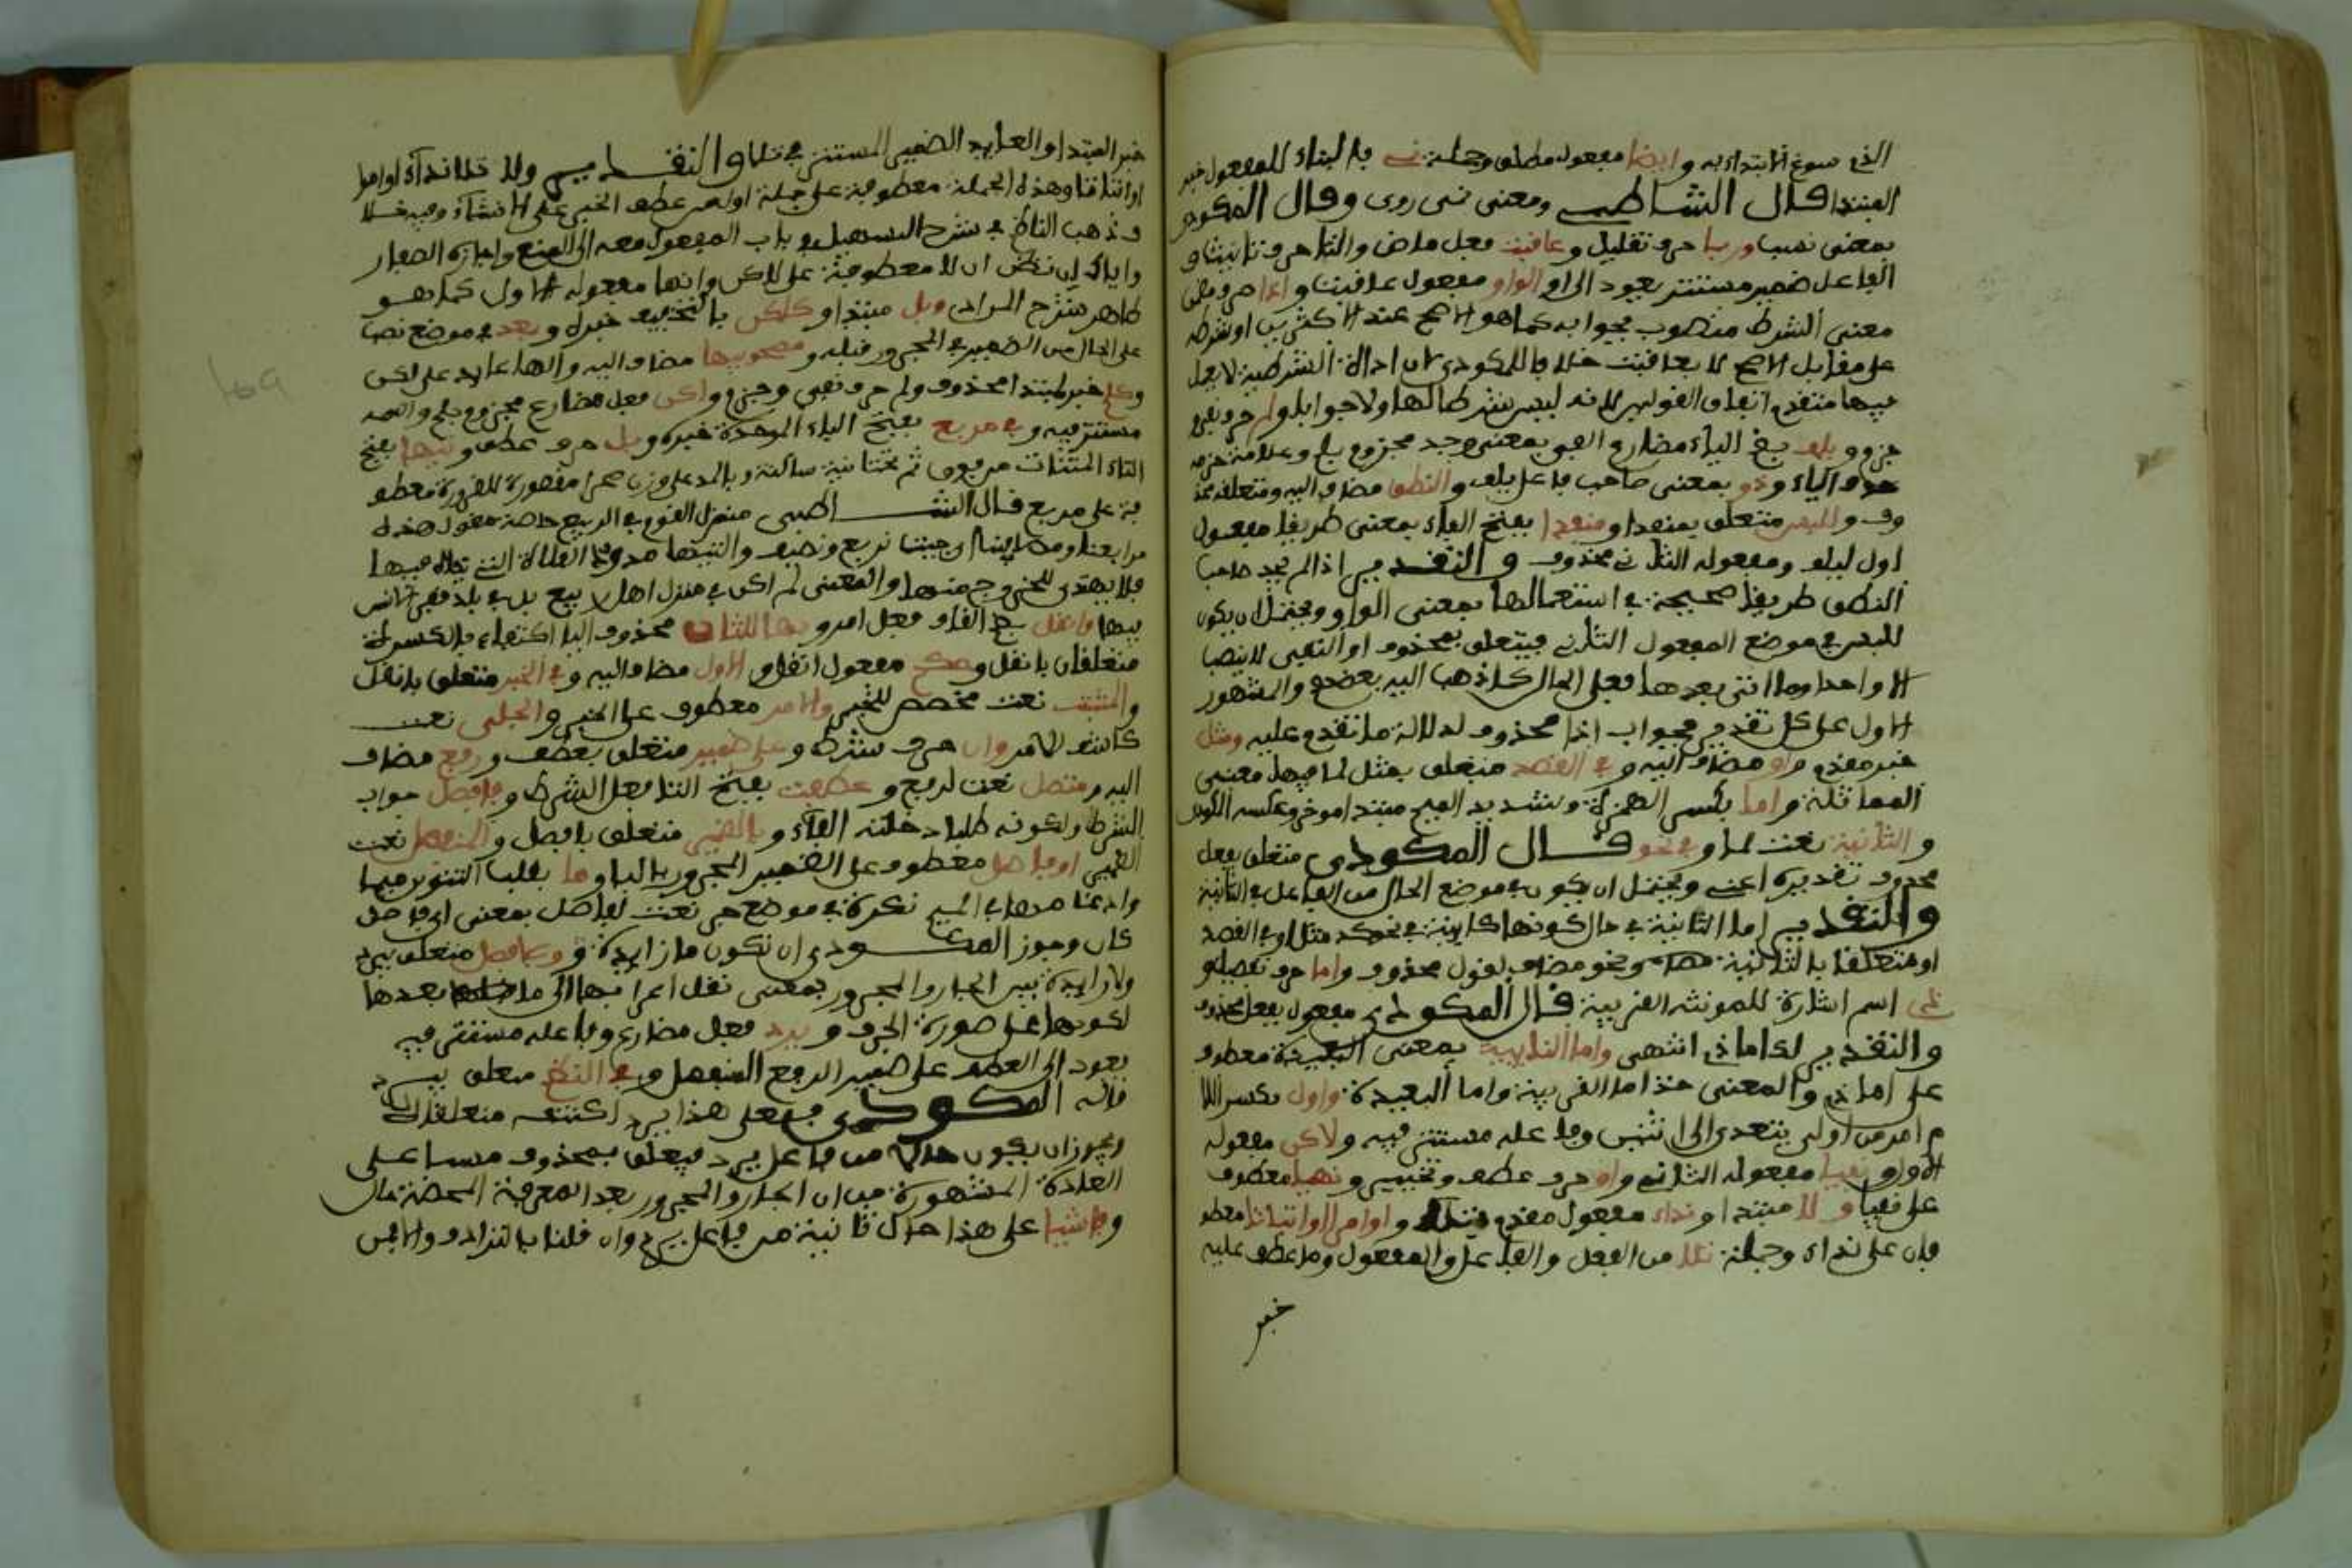 الذي سوغ الابتداء به وايضا مفعول مطلق وجملة نمي بالبناء للمفعول خبر
المبتدا قال الشاطبي ومعنى نمي روي وقال المكودي
بمعنى نسب وربما حرف تقليل وعاقبت فعل ماض والتا حرف تانيث و
الفاعل ضمير مستتر يعود الى او الواو مفعول عاقبت واذا ظرف مضمن
معنى الشرط منصوب بجوابه كما هو الاصح عند الاكثرين او بشرطه
على مقابل الاصح لا بعاقبت خلافا للمكودي لان اذا الشرطية لا يعمل
فيها متقدم اتفاق القولين لانه ليس شرطا لها ولا جوابا ولم حرف نفي و
جزم ويلف بضم الياء مضارع الفى بمعنى وجد مجزوم بلم وعلامة جزمه
حذف الياء وذو بمعنى صاحب فاعل يلف والنطق مضاف اليه ومتعلقه محذ
وف وللبس متعلق بمنفذا ومنفذا بفتح الفاء بمعنى طريقا مفعول
اول ليلف ومفعوله الثاني محذوف والتقدير اذا لم يجد صاحب
النطق طريقا صحيحة في استعمالها بمعنى الواو ويحتمل ان يكون
للبس في موضع المفعول الثاني فيتعلق بمحذوف او الفى لا ينصب
الا واحدا وما اتى بعدها فعلى الحال كما ذهب اليه بعضهم والمشهور
الاول على كل تقدير فجواب اذا محذوف لدلالة ما تقدم عليه ومثل
خبر مقدم واو مضاف اليه وفي القصد متعلق بمثل لما فيها معنى
المماثلة واما بكسر الهمزة وتشديد الميم مبتدا موخر وعكسه المكودي
والثانية نعت لما وفي نحو قال المكودي متعلق بفعل
محذوف تقديره اعني ويحتمل ان يكون في موضع الحال من الفاعل في الثانية
والتقدير اما الثانية في حال كونها كاينة في نحو كذا مثل او في القصد
او متعلقا بالثانية ونحو مضاف لقول محذوف واما حرف تفصيل و
ذي اسم اشارة للمونثه القريبة قال المكودي مفعول بفعل محذوف
والتقدير لك اما ذي انتهى واما النايية بمعنى البعيدة معطوف
على اما ذي والمعنى خذ اما القريبة واما البعيدة واول بكسر اللا
م امر من اولى يتعدى الى اثنين وفاعله مستتر فيه ولاكن مفعوله
الاول ونفيا مفعوله الثاني واو حرف عطف وتخيير ونهيا معطوف
على نفيا ولا مبتدا ونداء مفعول مقدم بتلا واو امرا او اثباتا معطو
فان على نداء وجملة تلا من الفعل والفاعل والمفعول وما عطف عليه
خبر
خبر المبتدا والعايد الضمير المستتر في تلا والتقدير ولا تلا نداء او امرا
او اثباتا وهذه الجملة معطوفة على جملة اول من عطف الخبر على الانشاء وفيه خلاف
وذهب الناظم في شرح التسهيل في باب المفعول معه الى المنع واجازه الصفار
واياك ان تظن ان لا معطوفة على لاكن وانها مفعوله الاول كما هو
ظاهر شرح المرادي وبل مبتدا وكلكن بالتخفيف خبره وبعد في موضع نصب
على الحال من الضمير في المجرور قبله ومصحوبيها مضاف اليه والها عايد على لكن
وكلم خبر لمبتدا محذوف ولم حرف نفي وجزم واكن فعل مضارع مجزوم بلم واسمه
مستتر فيه وفي مربع بفتح الباء الموحدة خبره وبل حرف عطف وتيها بفتح
التاء المثناة من فوق ثم تحتانية ساكنة وبالمد على وزن حمرا مقصورة للضرورة معطو
فة على مربع قال الشاطبي منزل القوم في الربيع خاصة تقول هذه
مرابعنا ومصايفنا اي حيث نربع ونصيف والتيها ممدودا الفلاة التي يتاه فيها
فلا يهتدى للخروج منها والمعنى لم اكن في منزل اهل ربيع بل في بلد قفر لا انس
فيها وانقل بضم القاف فعل امر وبها للثان محذوف اليا اكتفاء بالكسرة
متعلقان بانقل وحكم مفعول انقل والاول مضاف اليه وفي الخبر متعلق بانقل
والمثبت نعت مخصص للخبر والامر معطوف على الخبر والجلي نعت
كاشف للامر وان حرف شرط وعلى ضمير متعلق بعطفت ورفع مضاف
اليه ومتصل نعت لرفع وعطفت بفتح التا فعل الشرط وفافصل جواب
الشرط ولكونه طلبا دخلته الفاء وبالضمير متعلق بافصل والمنفصل نعت
الضمير او فاصل معطوف على الضمير المجرور بالبا وما بقلب التنوين ميما
وادغامها في الميم نكرة في موضع جر نعت لفاصل بمعنى اي فاصل
كان وجوز المكودي ان تكون ما زايدة وبلا فصل متعلق بيرد
ولا زايدة بين الجار والمجرور بمعنى نقل اعرابها الى ما بعدها
لكونها على صورة الحرف ويرد فعل مضارع وفاعله مستتر فيه
يعود الى العطف على ضمير الرفع المتصل وفي النظم متعلق بيرد
قاله المكودي فعلى هذا يرد اكتنفه متعلقان
ويجوز ان يكون حالا من فاعل يرد فيتعلق بمحذوف على
القاعدة المشهورة من ان الجار والمجرور بعد المعرفة المحضة حال
وفاشيا على هذا حال ثانية من فاعل يرد وان قلنا بالترادف والا فمن